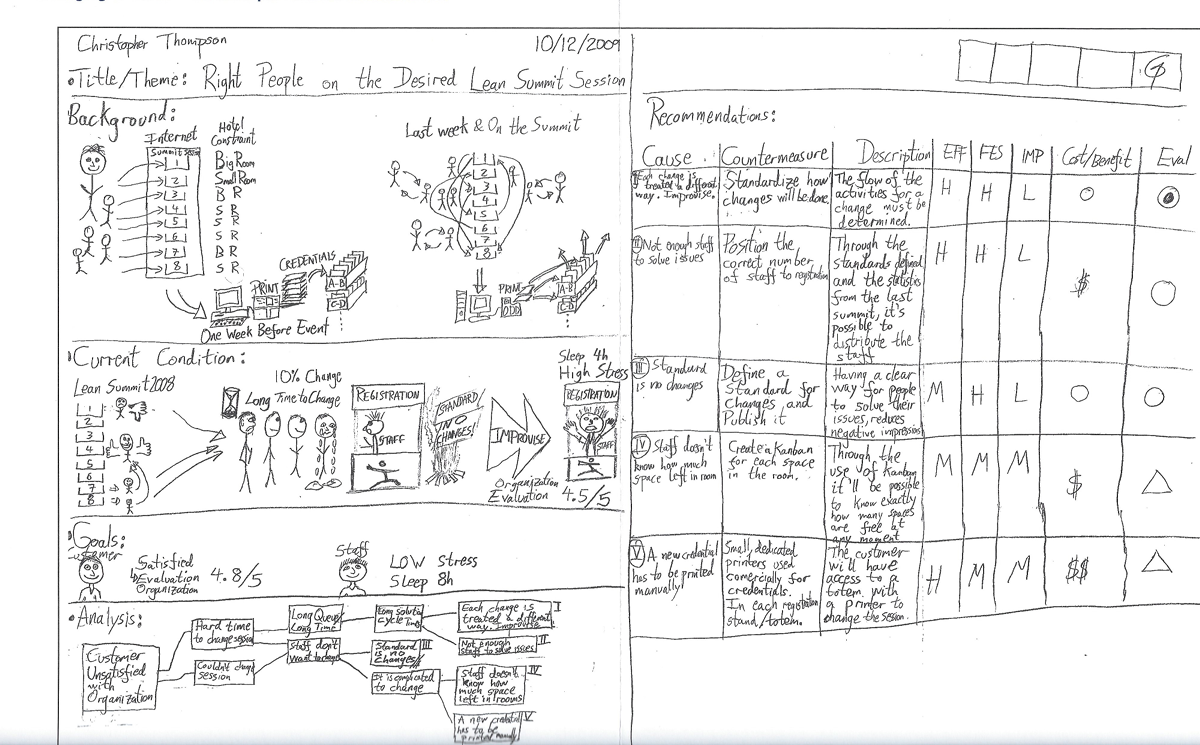 Christopher Thompson
10/12/2009
•Title/Theme: Right People on the Desired Lean Summit Session
Background:
Internet
Hotel
Constraint
1 Big Room
2 Small Room
3 B R
4 S R
5 S R
6 S R
7 B R
8 S R
PRINT
CREDENTIALS
A-B
C-D
One Week Before Event
Last week & On the Summit
1
2
3
4
5
6
7
8
PRINT
A-B
C-D
Current Condition:
Lean Summit 2008
1
2
3
4
5
6
7
8
10% Change
Long Time to Change
REGISTRATION
STAFF
STANDARD
IS NO
CHANGES!
IMPROVISE
Sleep 4h
High Stress
REGISTRATION
STAFF
Organization
Evaluation 4.5/5
Goals:
Customer
Satisfied
Evaluation 4.8/5
Organization
Staff
LOW Stress
Sleep 8h
•Analysis:
Customer
Unsatisfied
with
Organization
Hard time
to change session
Couldn't change
session
Long Queue
Long Time
Staff don't
want to change
Long solution
cycle time
Standard
is no
changes!!
III
It is complicated
to change
Each change is
treated a different
way. Improvise
I
Not enough
staff to solve issues
II
Staff doesn't
know how
much space
left in rooms
IV
A new credential
has to be
printed manually
V
Recommendations:
Cause Countermeasure Description EFF FES IMP Cost/Benefit Eval
I Each change is
treated a different
way. Improvise.
Standardize how
changes will be done.
The flow of the
activities for a
change must be
determined.
H H L
II Not enough staff
to solve issues
Position the
correct number
of staff to registration
Through the
standards defined
and the statistics
from the last
summit, it's
possible to
distribute the
staff
H H L $
III Standard
is no changes
Define a
Standard for
Changes, and
Publish it
Having a clear
way for people
to solve their
issues, reduces
negative impression
M H L
IV Staff doesn't
know how much
space left in room
Create a Kanban
for each space
in the room.
Through the
use of Kanban
it'll be possible
to know exactly
how many spaces
are free at
any moment
M M M $
V A new credential
has to be printed
manually
Small, dedicated
printers used
comercially for
credentials.
In each registration
stand/totem.
The customer
will have
access to a
totem, with
a printer to
change the session.
H M M $$